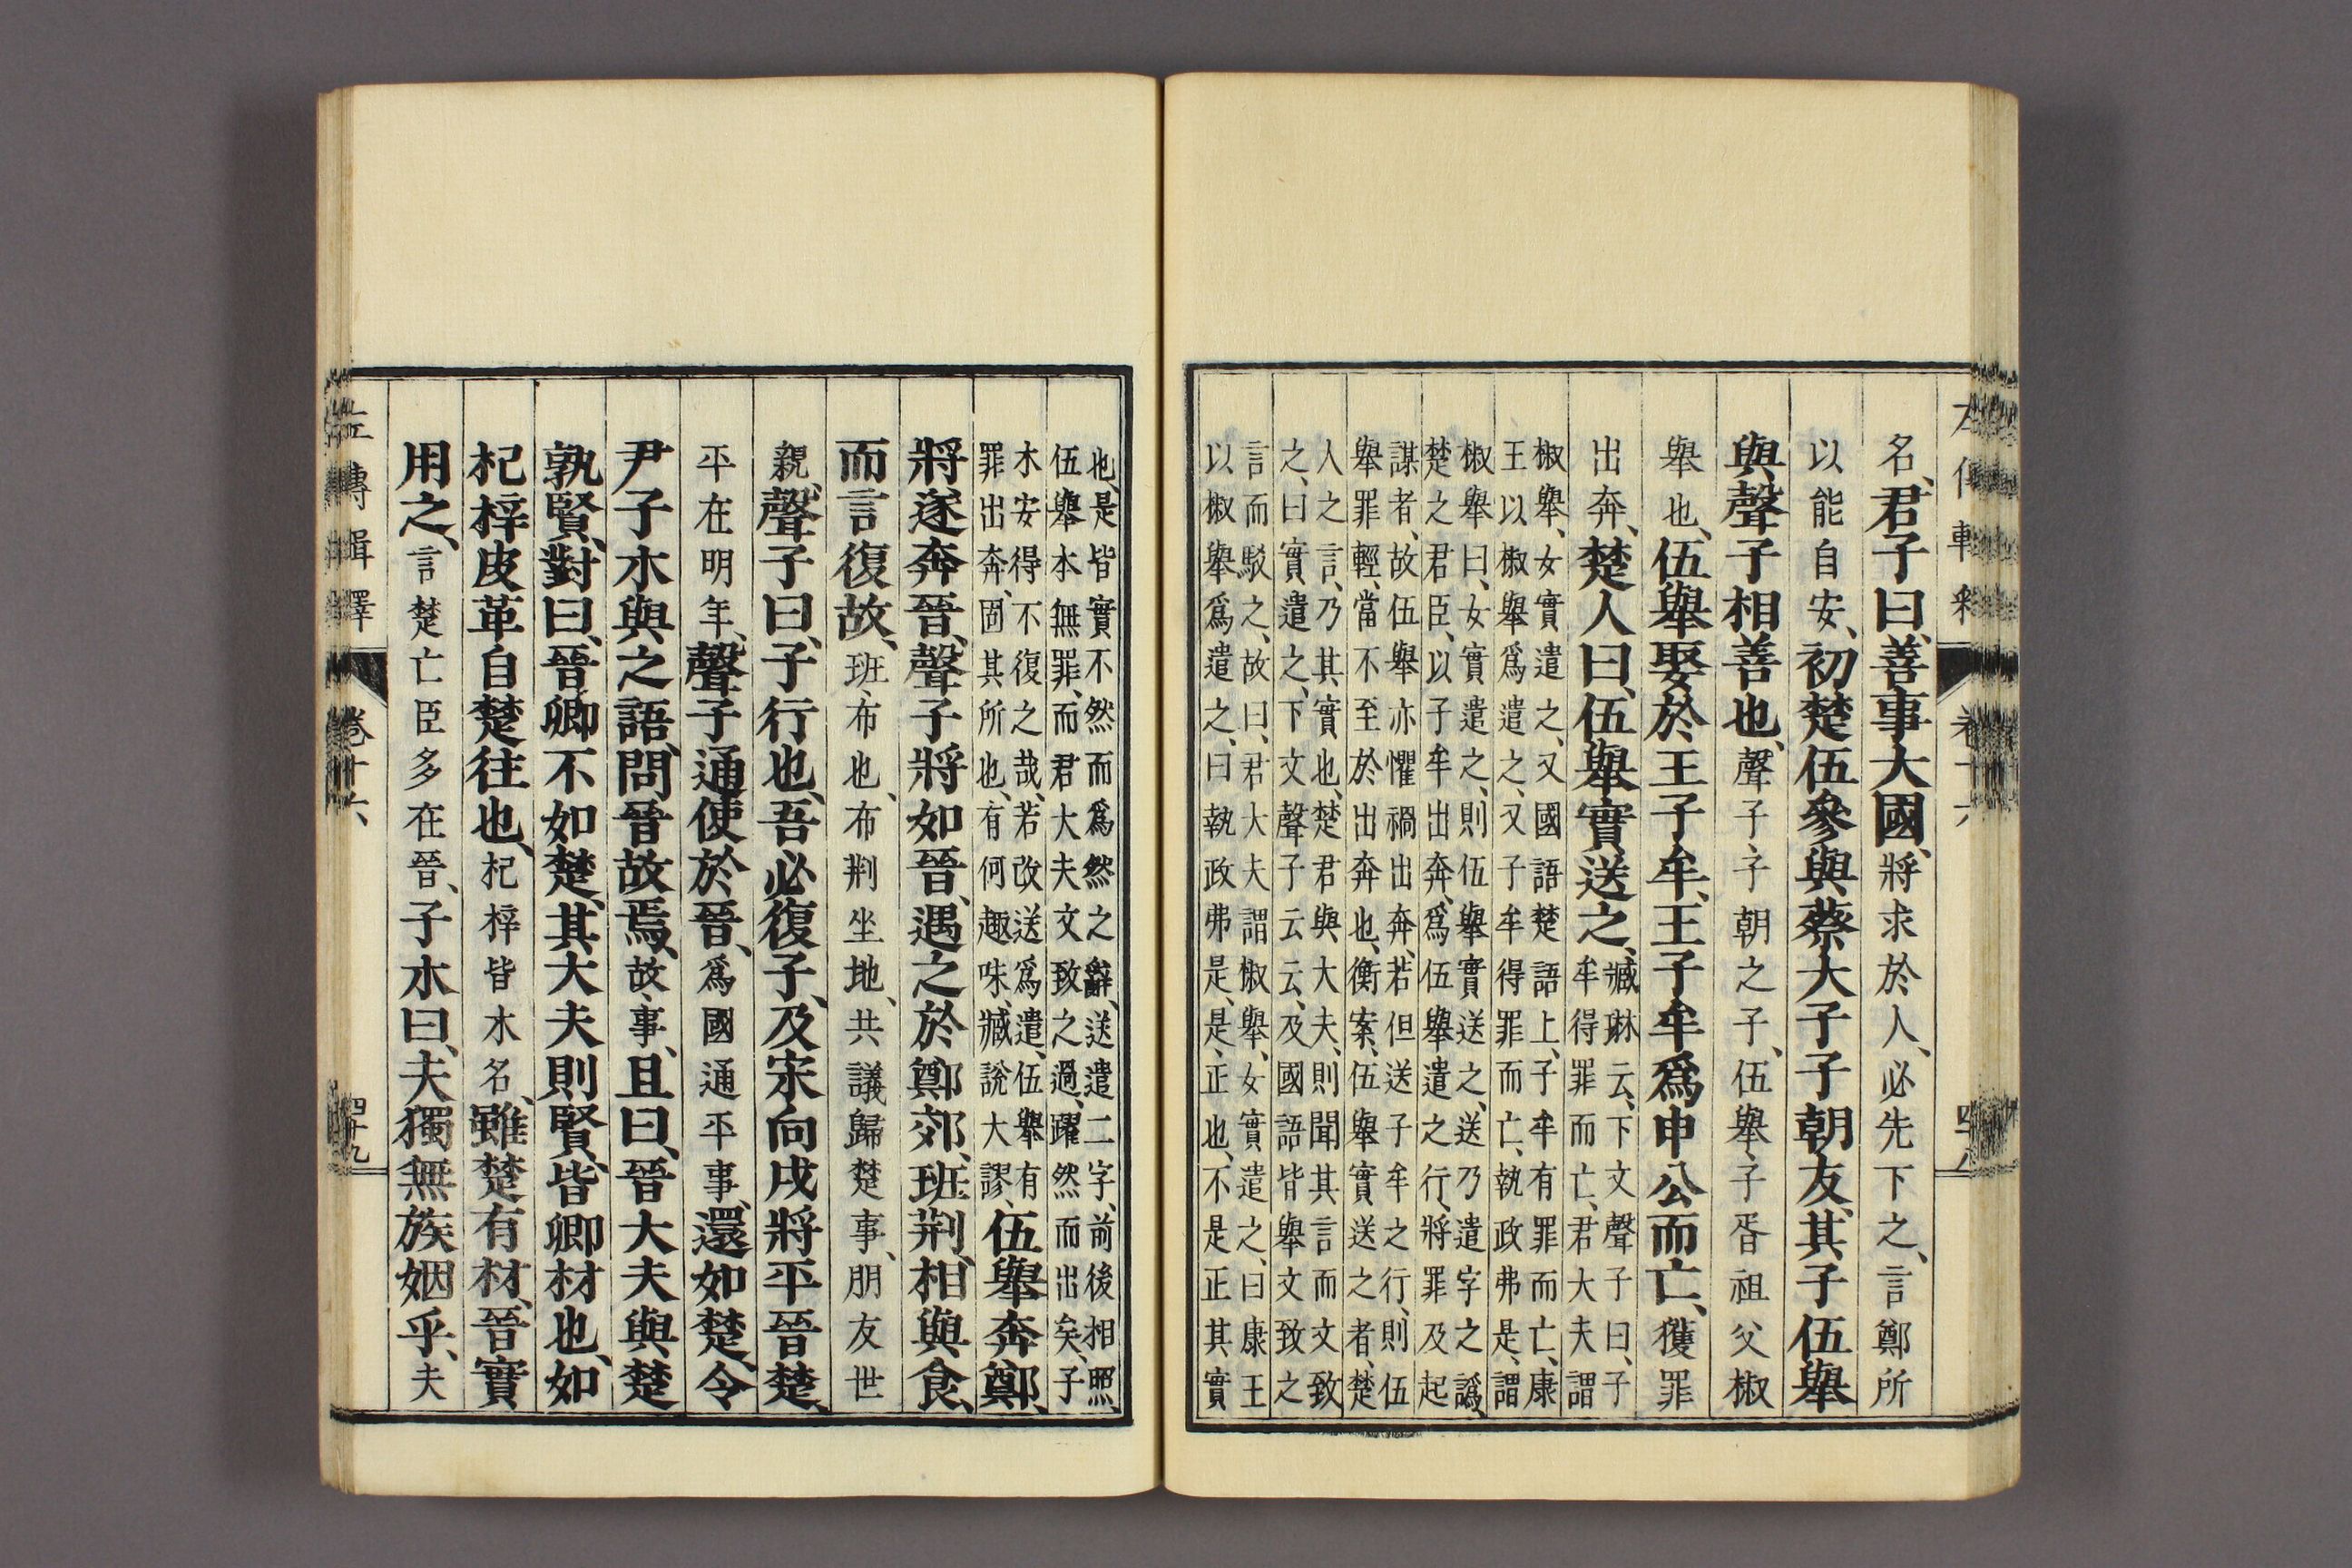 名、君子曰、善事大國、將求於人、必先下之、言鄭所
以能自安、初楚伍參與蔡大子子朝友、其子伍舉
與聲子相善也、聲子子朝之子、伍舉、子胥祖父椒
舉也、伍舉娶於王子牟、王子牟爲申公而亡、獲罪
出奔、楚人曰、伍舉實送之、臧琳云、下文聲子曰、子
牟得罪而亡、君大夫謂
椒舉、女實遣之、又國語楚語上、子牟有罪而亡、康
王以椒舉爲遣之、又子牟得罪而亡、執政弗是、謂
椒舉曰、女實遣之、則伍舉實送之、送乃遣字之譌、
楚之君臣、以子牟出奔、爲伍舉遣之行、將罪及起
謀者、故伍舉亦懼禍出奔、若但送子牟之行、則伍
舉罪輕、當不至於出奔也、衡案、伍舉實送之者、楚
人之言、乃其實也、楚君與大夫、則聞其言而文致
之、曰實遣之、下文聲子云云、及國語皆舉文致之
言而駁之、故曰、君大夫謂椒舉、女實遣之、曰康王
以椒舉爲遣之、曰執政弗是、是、正也、不是正其實
也、是皆實不然而爲然之辭、送遣二字、前後相照、
伍舉本無罪、而君大夫文致之過、躍然而出矣、子
木安得不復之哉、若改送爲遣、伍舉有
罪出奔、固其所也、有何趣味、臧說大謬、伍舉奔鄭、
將遂奔晉、聲子將如晉、遇之於鄭郊、班荆、相與食、
而言復故、班、布也、布荆坐地、共議歸楚事、朋友世
親、聲子曰、子行也、吾必復子、及宋向戌將平晉楚、
平在明年、聲子通使於晉、爲國通平事、還如楚、令
尹子木與之語、問晉故焉、故、事、且曰、晉大夫與楚
孰賢、對曰、晉卿不如楚、其大夫則賢、皆卿材也、如
杞梓皮革自楚往也、杞梓皆木名、雖楚有材、晉實
用之、言楚亡臣多在晉、子木曰、夫獨無族姻乎、夫
左傳輯釋 卷十六 四十九